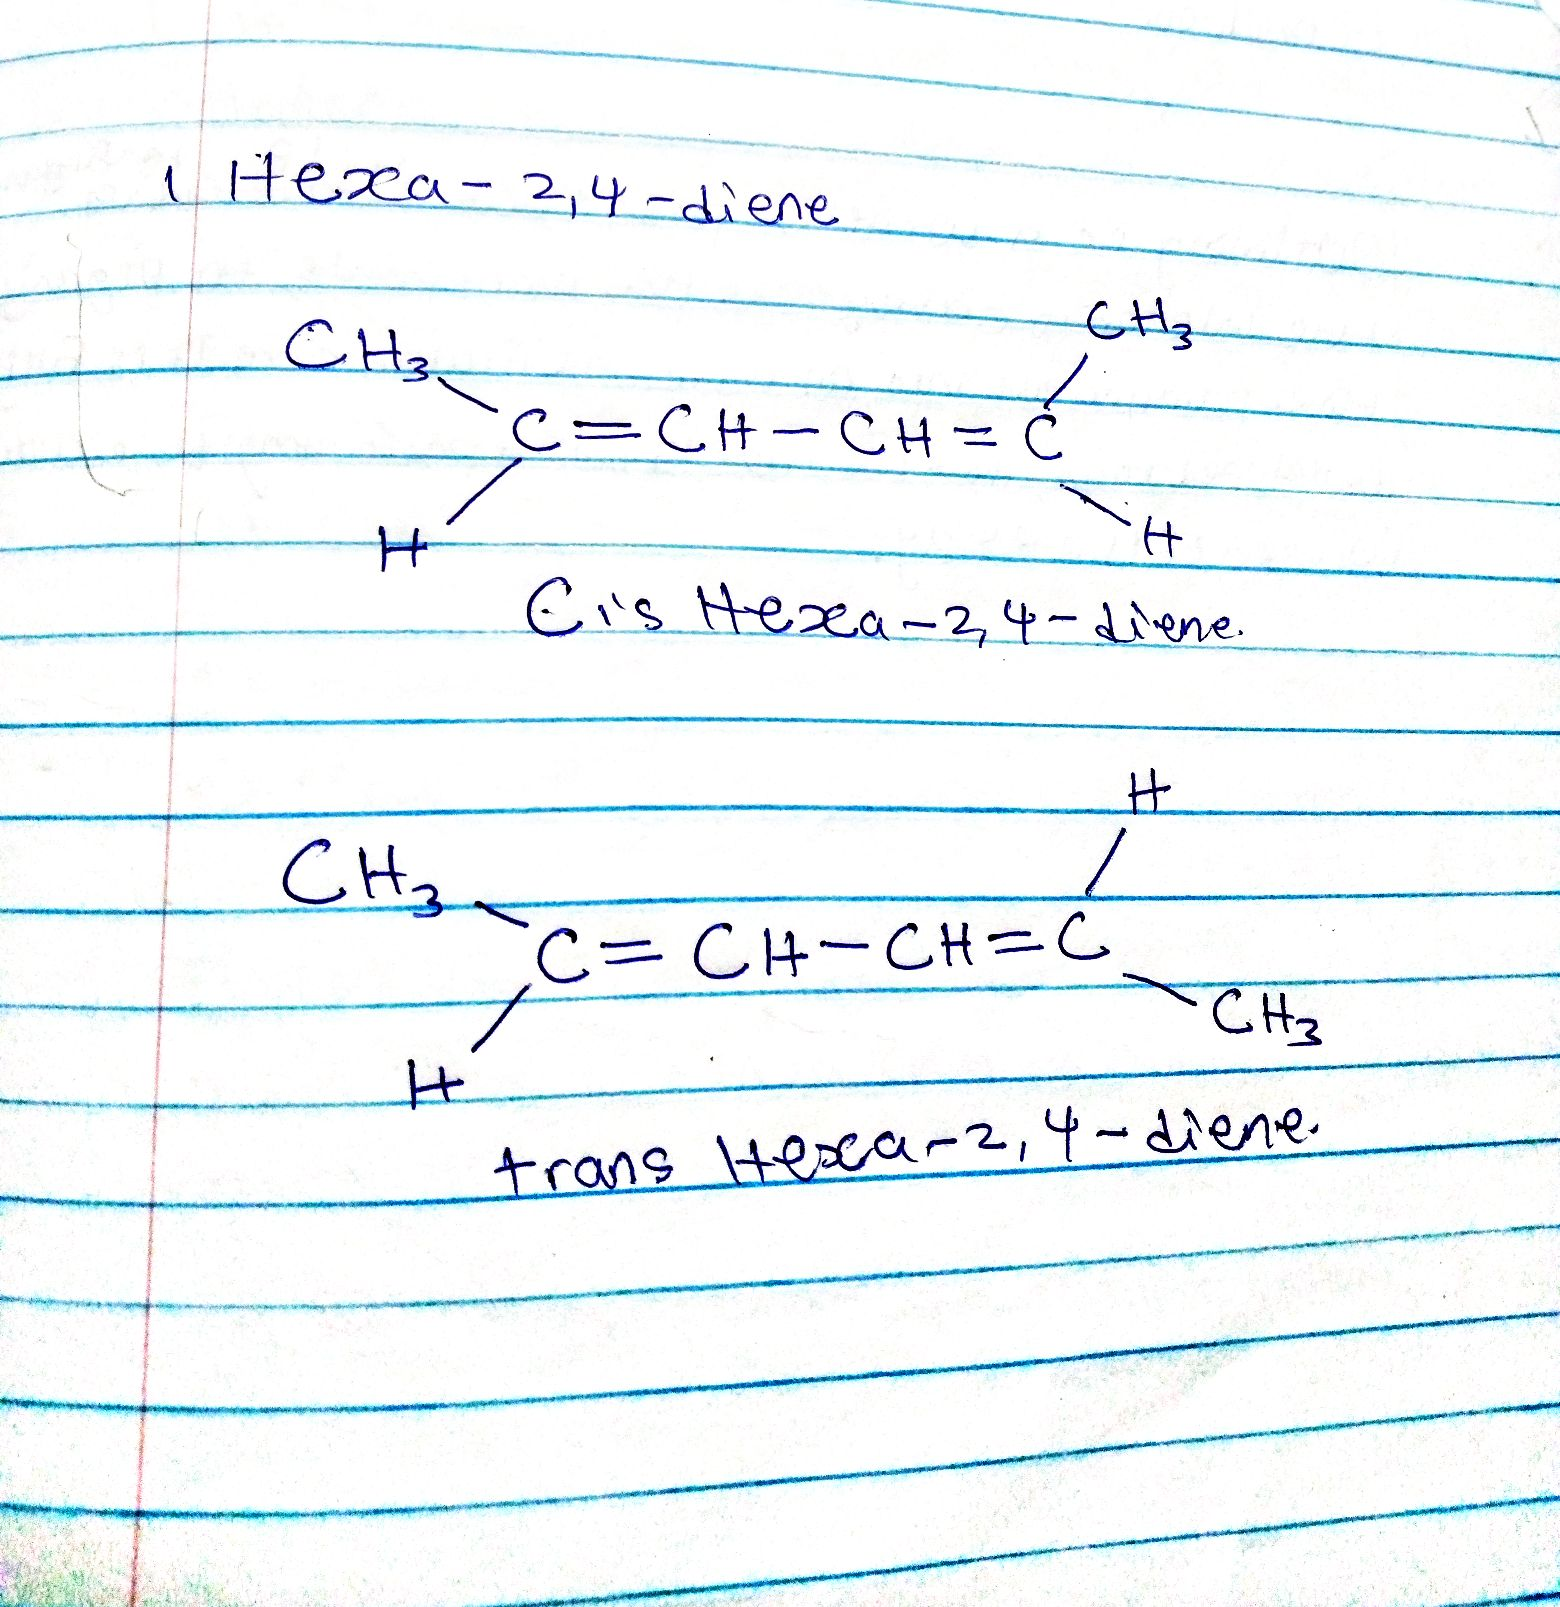 1 Hexa-2,4-diene
CH3 CH3
C=CH-CH=C
H H
Cis Hexa-2,4-diene.
H
CH3
C=CH-CH=C
CH3
H
trans Hexa-2,4-diene.